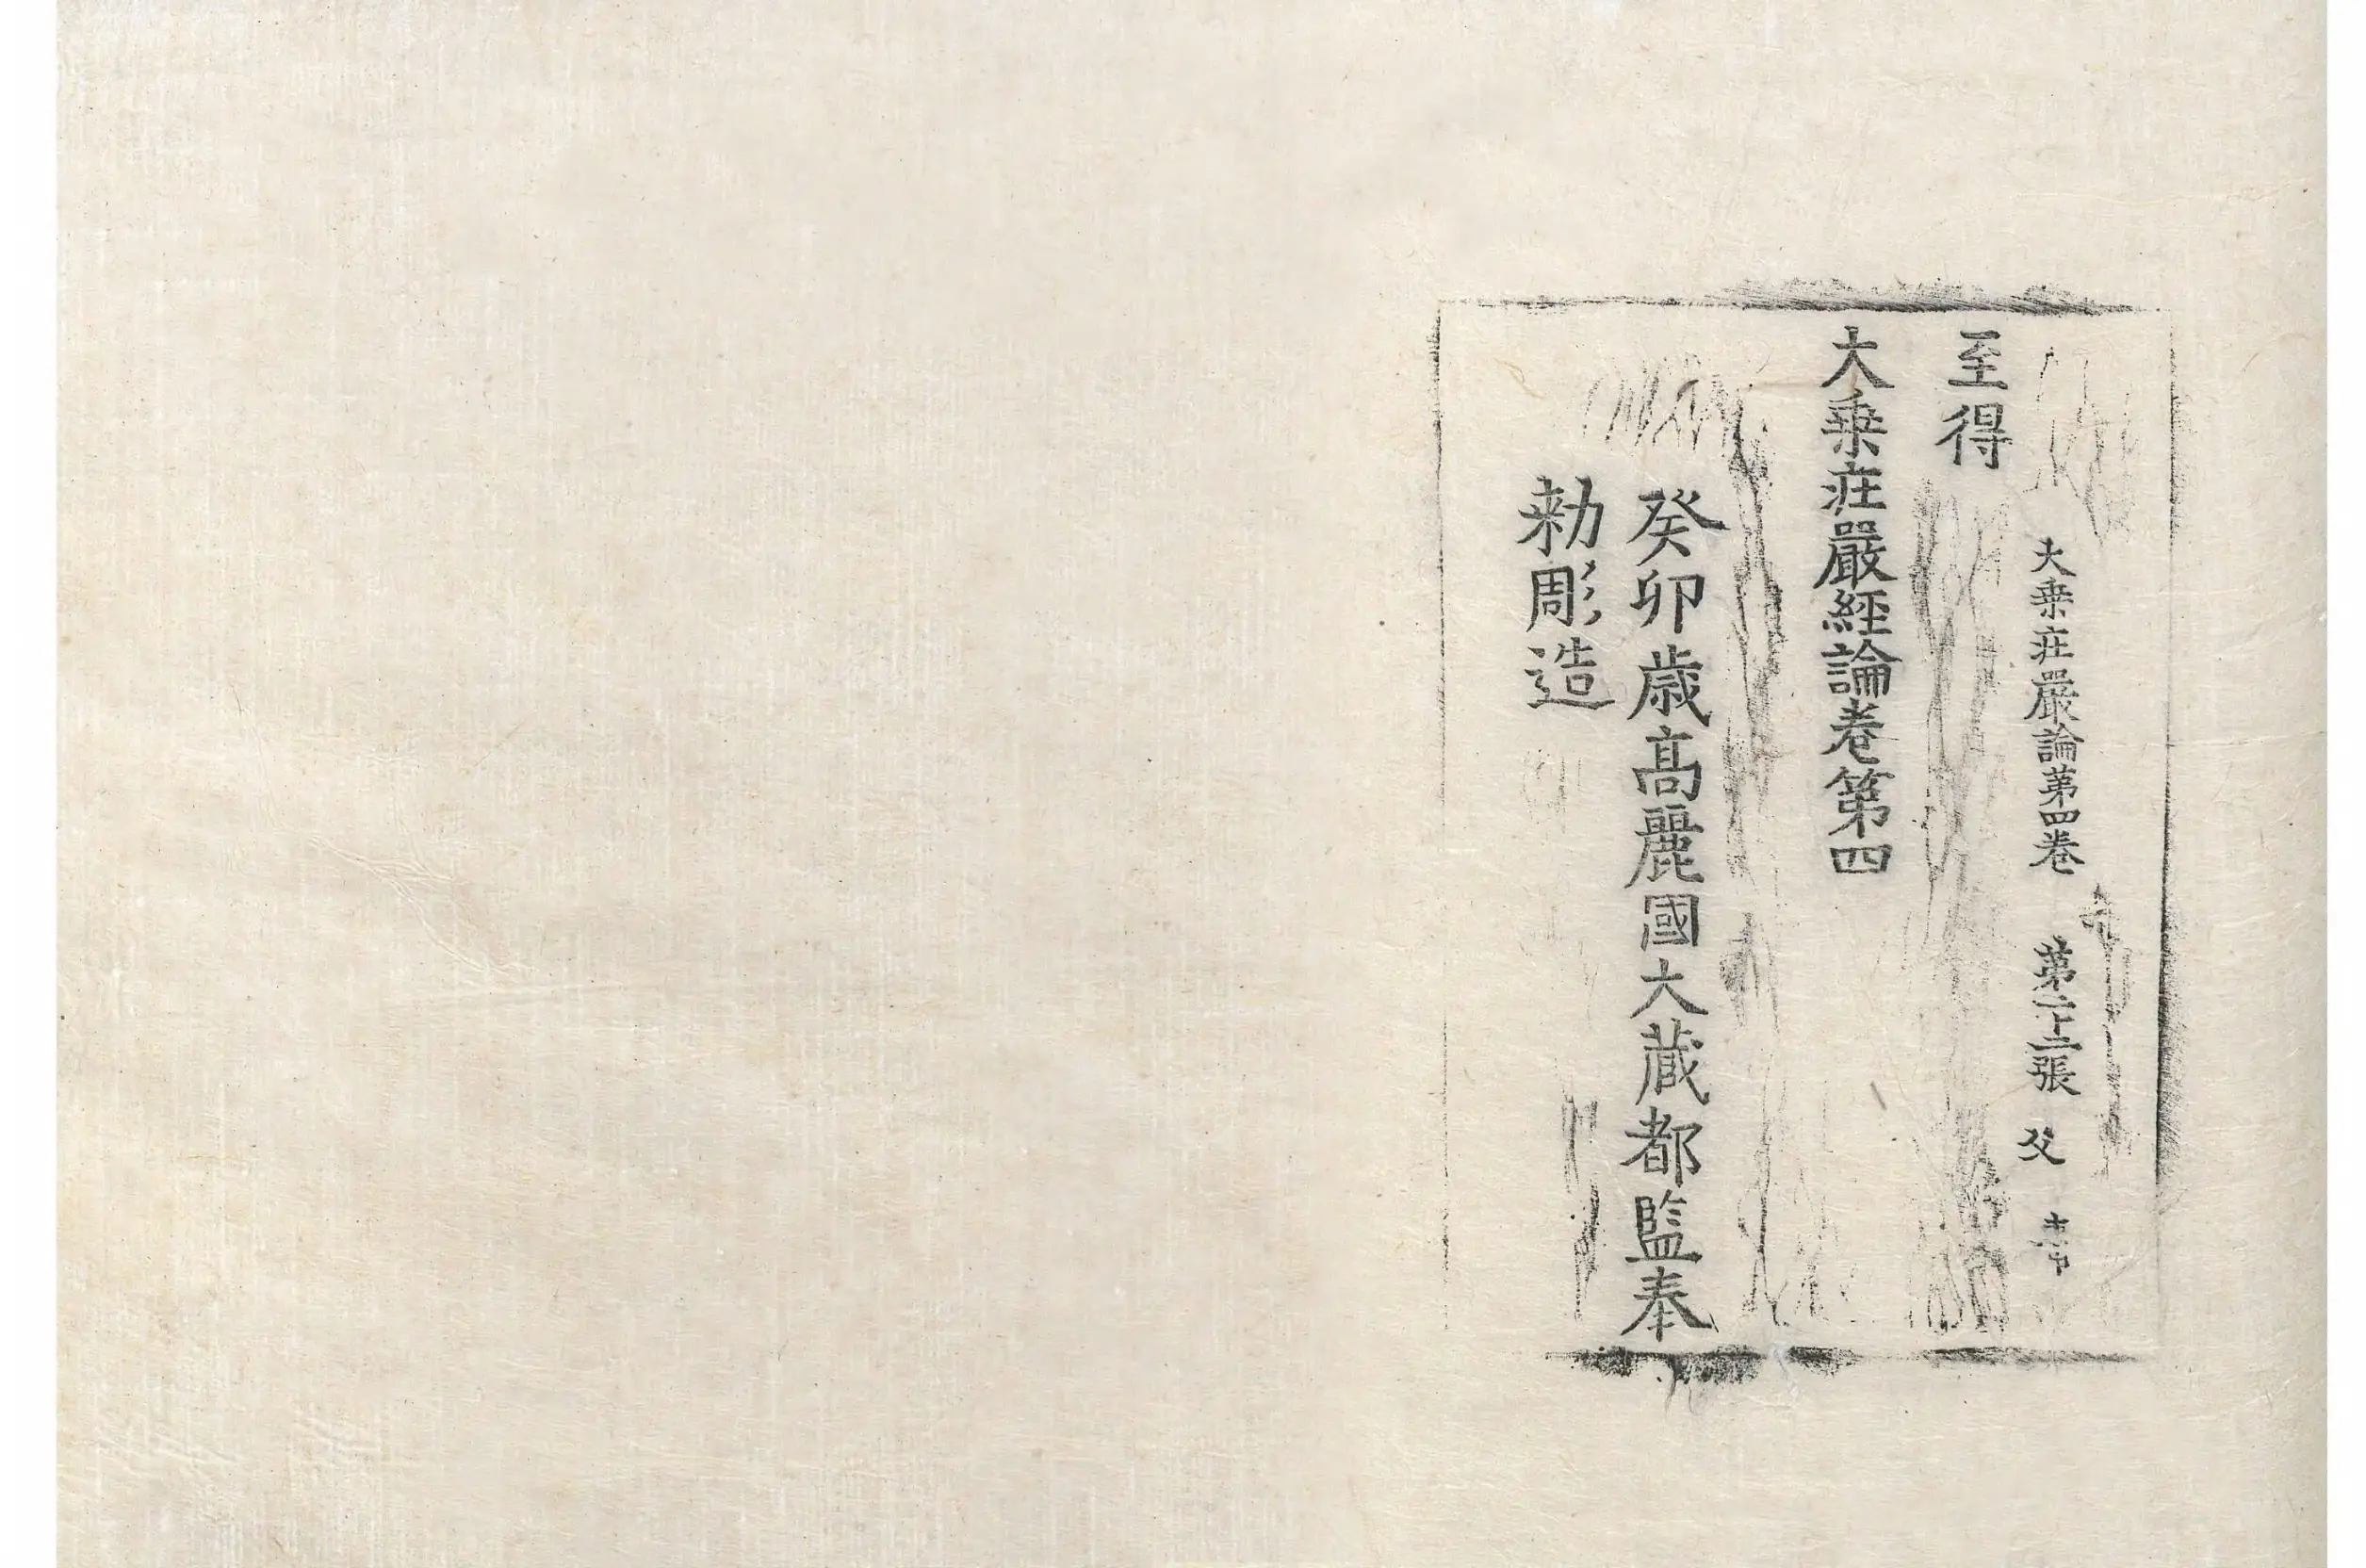 大乗莊嚴論第四卷 第二十二張 父
至得
大乗莊嚴經論卷第四
癸卯歳髙麗國大藏都監奉
勑彫造